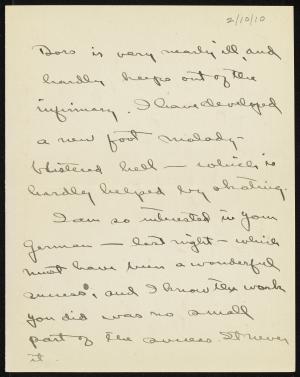 2/10/10
Dors is very nearly ill, and
hardly keeps out of the
infirmary. I have developed
a new foot malady-
blistered heel — which is
hardly helped by skating.
I am so interested in your
German — last night — which
must have been a wonderful
success, and I know the work
you did was no small
part of the success.
it.